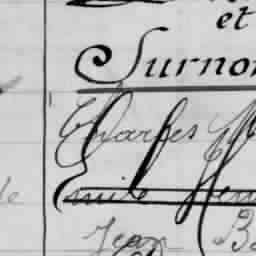 et
Surno
Charles
Emile Hen
Jean B